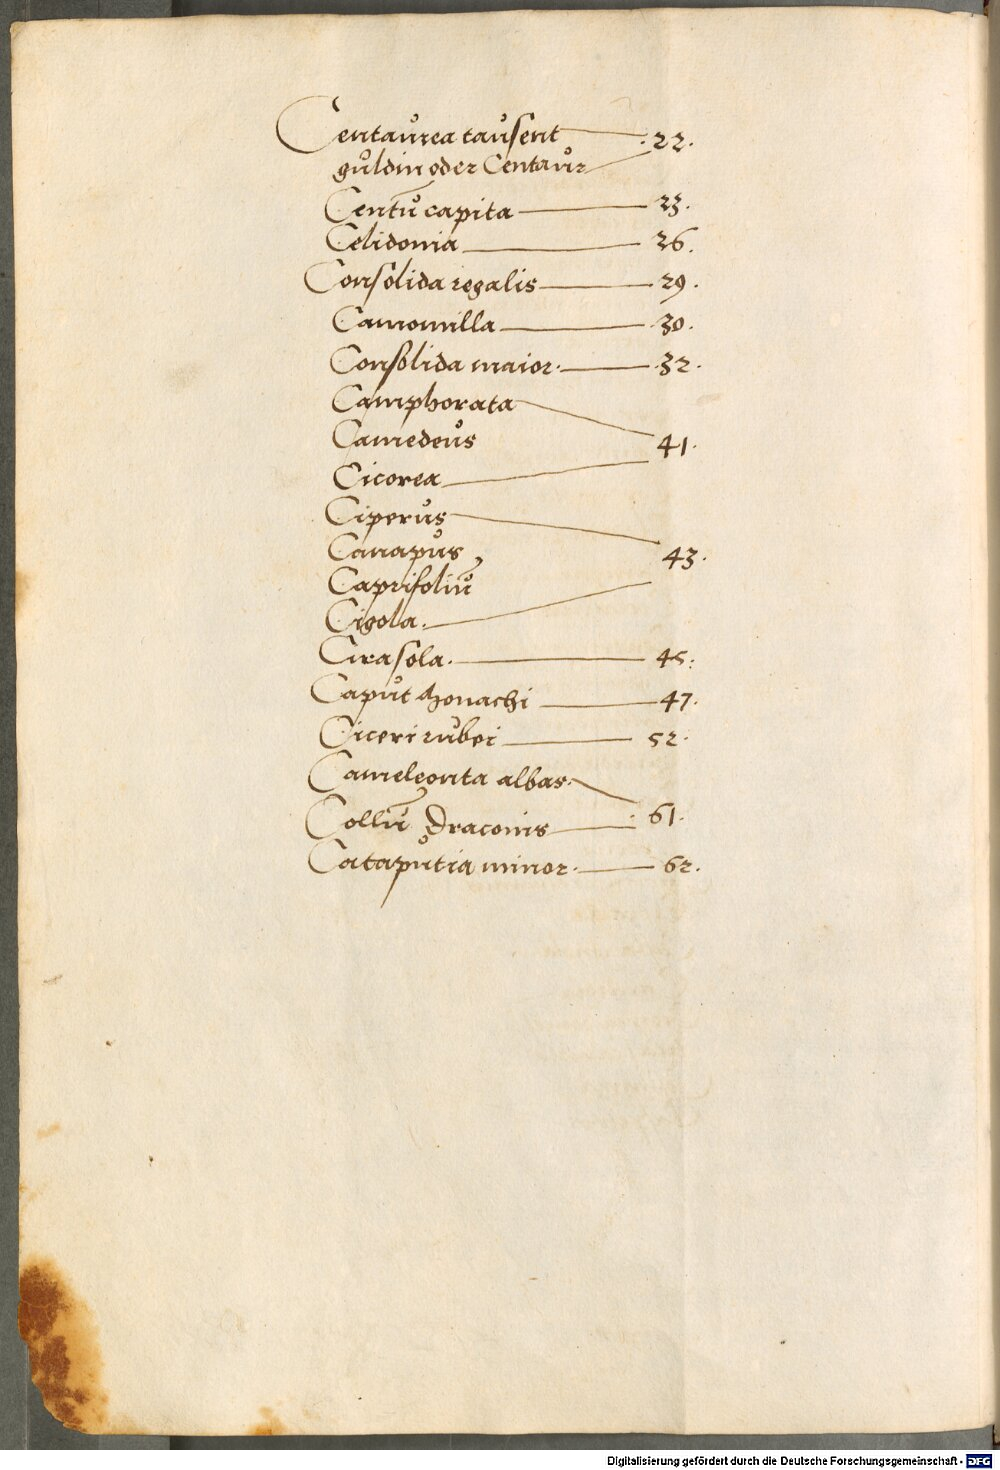 Centaurea tausent
guldin oder Centaur · 22 ·
Centū capita 23 ·
Celidonia 26 ·
Consolida regalis 29 ·
Camomilla 30 ·
Consolida maior · 32 ·
Camphorata
Camedeus 41 ·
Cicorea
Ciperus
Canapus 43 ·
Caprifoliū
Cigola ·
Cirasola · 45 :
Caput Monachi 47 ·
Ciceri rubei 52 ·
Cameleonta albas ·
Collū Draconis : 61 ·
Cataputia minor · 62 ·
Digitalisierung gefördert durch die Deutsche Forschungsgemeinschaft - DFG